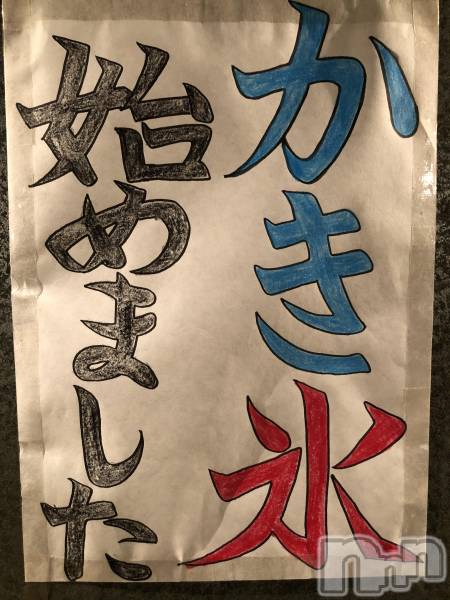 かき氷
始めました